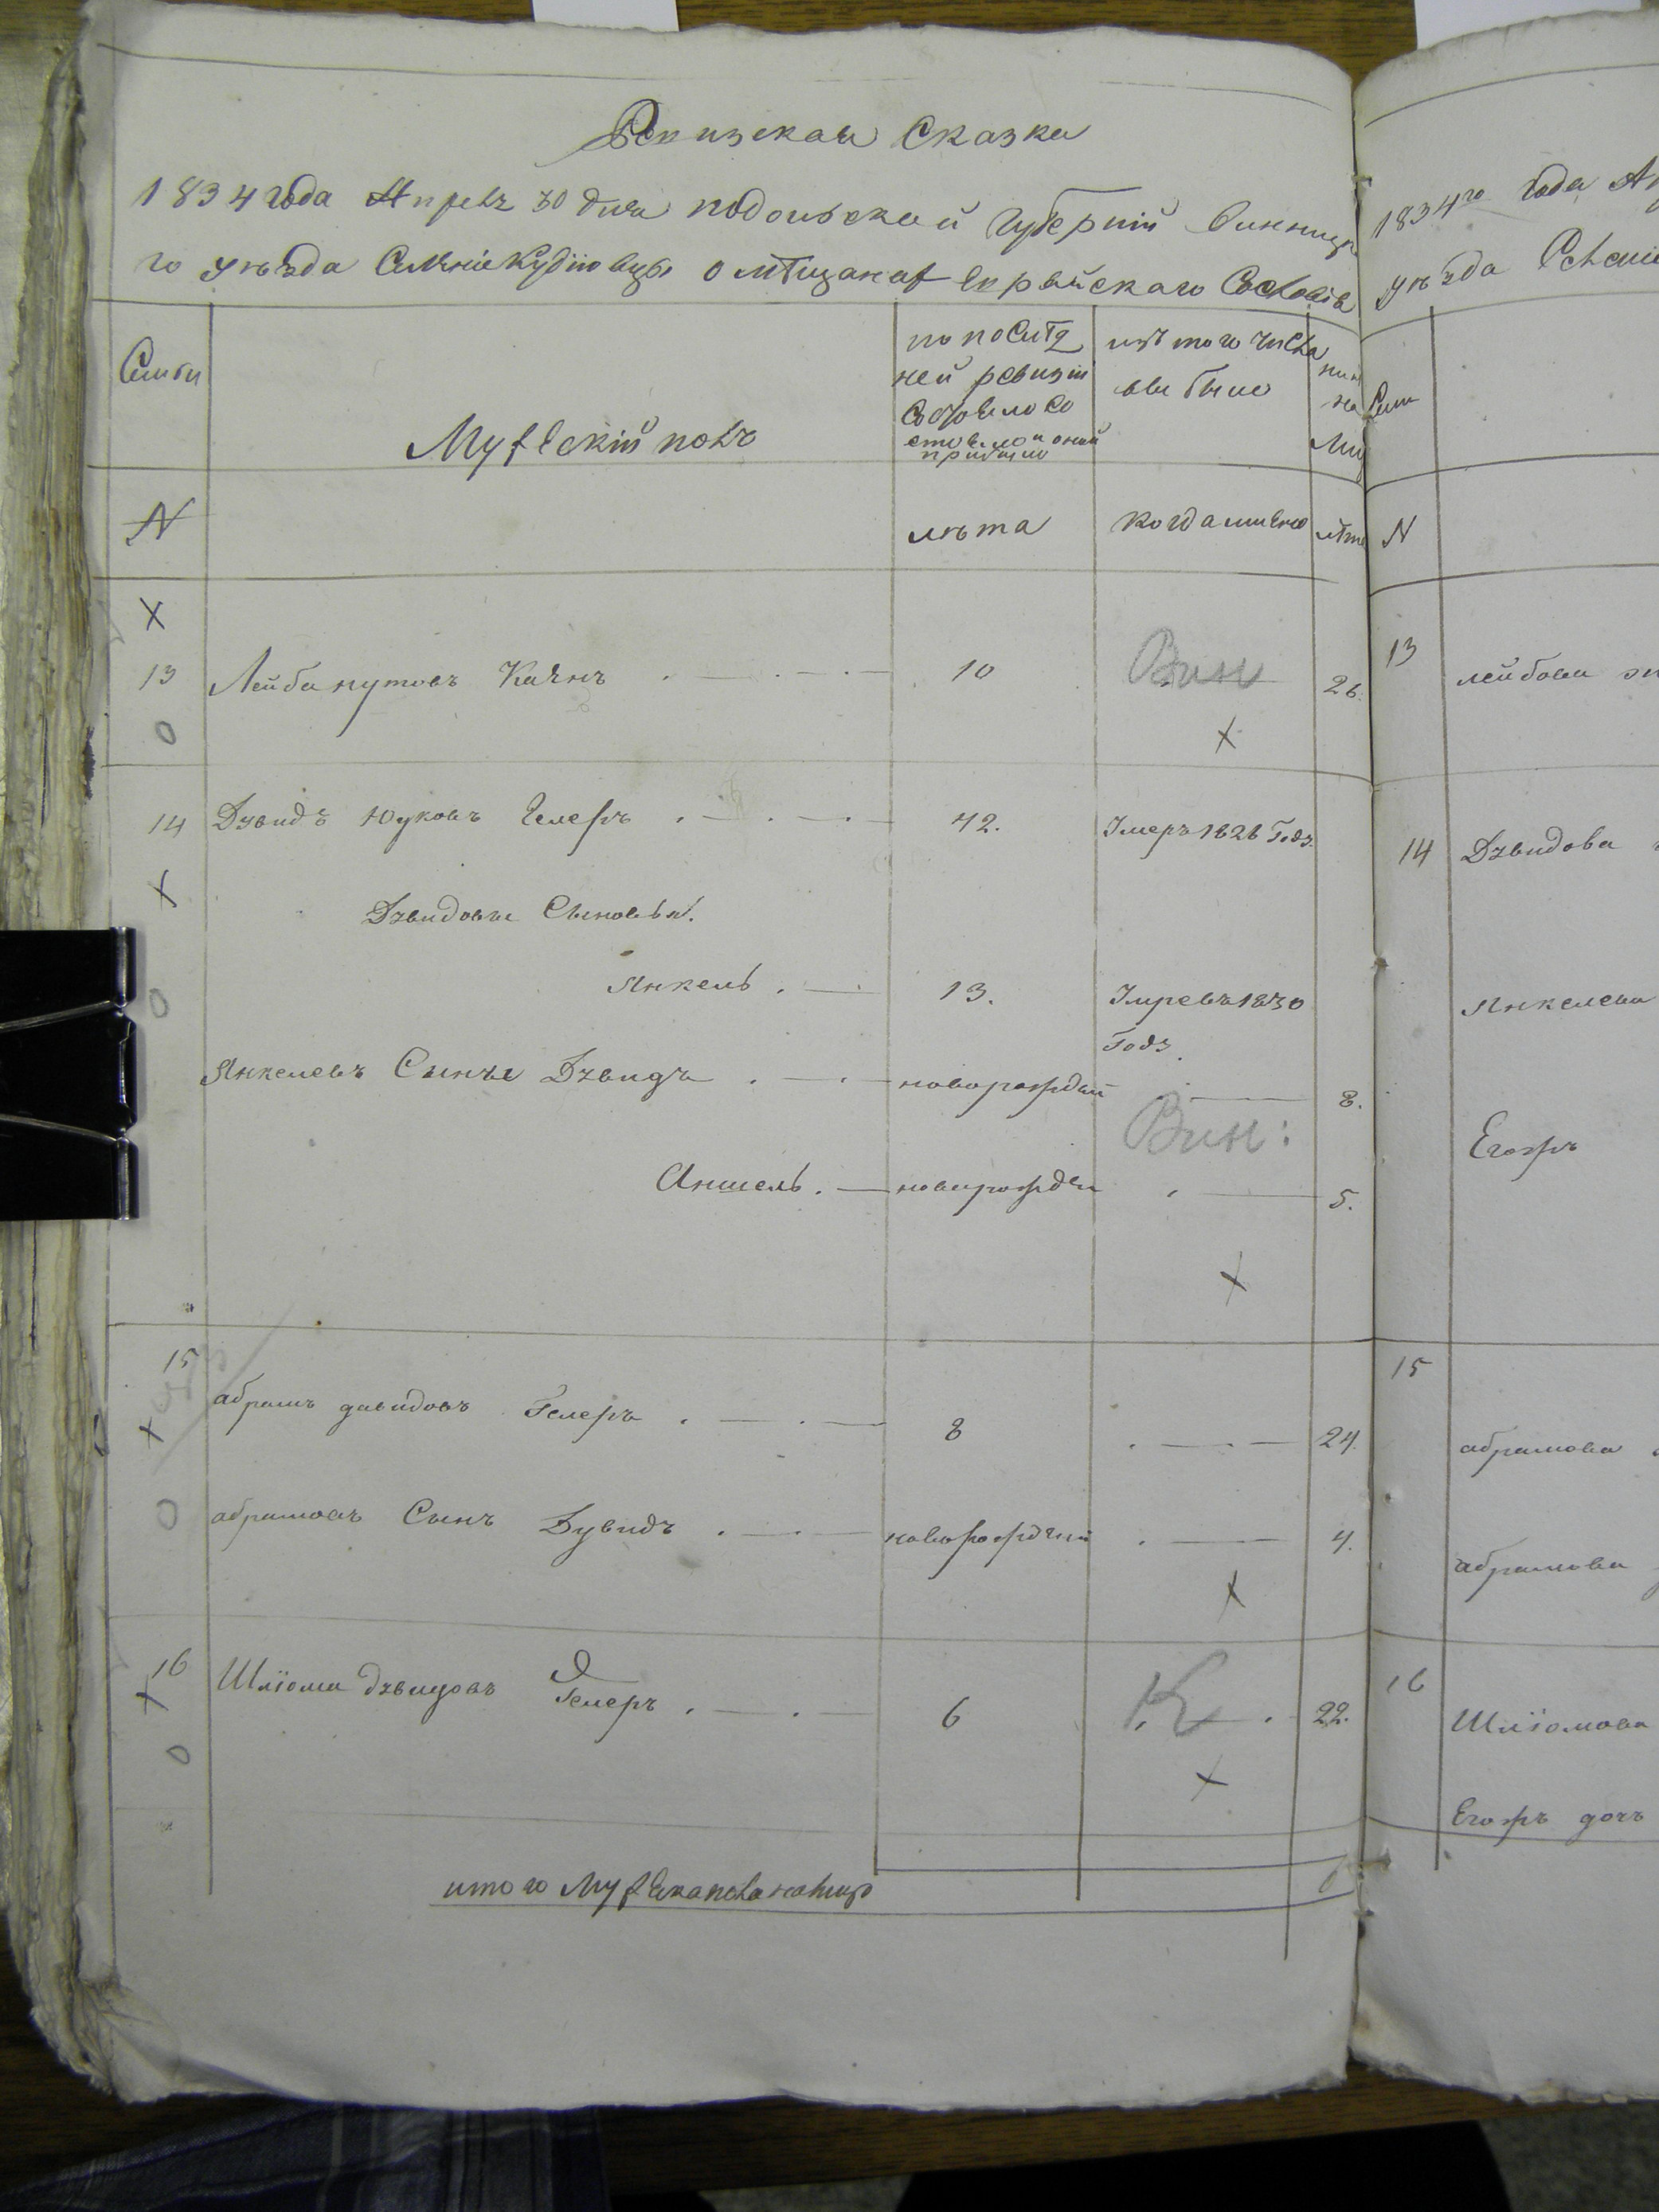 Ревизская Сказка
1834 года Апреля 30 дня Подольской Губернии Винниц
го уѣзда Селеніе Кудіовцы о мѣщанах еврейскаго
Семьи
Мужескій полъ
по послѣд
ней ревизіи
состояло
и оной
прибыло
изъ того числа
выбыло
N
лѣта
когда имено
лѣта
X
13 Лейба путовъ Каянъ 10 Вин 26.
0 X
14 Дувидъ Юуковъ Гелеръ 42. Умеръ 1826 Годъ
X
Дувидовы Сыновья.
Янкель 13. Умревъ 1830
0 Годъ
Янкелевъ Сынъ Дувидъ новорожден 8.
Вин:
Аншель новорожден 5.
X
15
X Абрамъ давидовъ Гелеръ 8 24.
0 абрамовъ Сынъ Дувидъ новорожденый 4.
X
16 Шліома дувидовъ Гелеръ 6 К 22.
X
0 X
итого Мужескапола налицо
1834го Года Ап
уѣзда Селеніе
Семи
N
13 лейбова
14 Дувидова
Янкелева
Егожъ
15
абрамова
абрамова
16
Шліомова
Егожъ дочъ